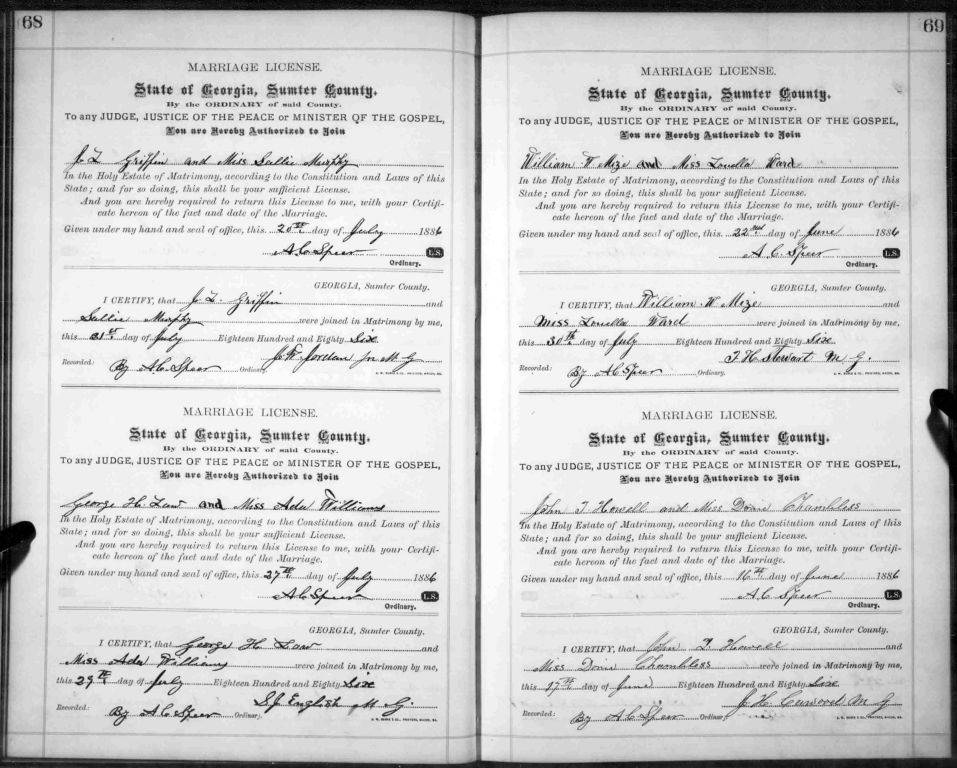 68
MARRIAGE LICENSE.
State of Georgia, Sumter County.
By the ORDINARY of said County.
To any JUDGE, JUSTICE OF THE PEACE or MINISTER OF THE GOSPEL,
You are Hereby Authorized to Join
J. L. Griffin and Miss Sallie Murphy
In the Holy Estate of Matrimony, according to the Constitution and Laws of this
State; and for so doing, this shall be your sufficient License.
And you are hereby required to return this License to me, with your Certifi-
cate hereon of the fact and date of the Marriage.
Given under my hand and seal of office, this 20th day of July 1886
A C Speer L.S.
Ordinary.
GEORGIA, Sumter County.
I CERTIFY, that J. L. Griffin and
Sallie Murphy were joined in Matrimony by me,
this 31st day of July Eighteen Hundred and Eighty Six
J W Jordan Jr M G
Recorded: By A C Speer Ordinary.
MARRIAGE LICENSE.
State of Georgia, Sumter County.
By the ORDINARY of said County.
To any JUDGE, JUSTICE OF THE PEACE or MINISTER OF THE GOSPEL,
You are Hereby Authorized to Join
George H Law and Miss Ada Williams
In the Holy Estate of Matrimony, according to the Constitution and Laws of this
State; and for so doing, this shall be your sufficient License.
And you are hereby required to return this License to me, with your Certifi-
cate hereon of the fact and date of the Marriage.
Given under my hand and seal of office, this 27th day of July 1886
A C Speer L.S.
Ordinary.
GEORGIA, Sumter County.
I CERTIFY, that George H. Law and
Miss Ada Williams were joined in Matrimony by me,
this 29th day of July Eighteen Hundred and Eighty Six
S J English M G.
Recorded: By A C Speer Ordinary.
69
MARRIAGE LICENSE.
State of Georgia, Sumter County.
By the ORDINARY of said County.
To any JUDGE, JUSTICE OF THE PEACE or MINISTER OF THE GOSPEL,
You are Hereby Authorized to Join
William W Mize and Miss Louella Ward
In the Holy Estate of Matrimony, according to the Constitution and Laws of this
State; and for so doing, this shall be your sufficient License.
And you are hereby required to return this License to me, with your Certifi-
cate hereon of the fact and date of the Marriage.
Given under my hand and seal of office, this 22nd day of June 1886
A C. Speer L.S.
Ordinary.
GEORGIA, Sumter County.
I CERTIFY, that William W Mize and
Miss Louella Ward were joined in Matrimony by me,
this 30th day of July Eighteen Hundred and Eighty Six
T. H. Stewart M G.
Recorded: By A C Speer Ordinary.
MARRIAGE LICENSE.
State of Georgia, Sumter County.
By the ORDINARY of said County.
To any JUDGE, JUSTICE OF THE PEACE or MINISTER OF THE GOSPEL,
You are Hereby Authorized to Join
John T Howell and Miss Chambless
In the Holy Estate of Matrimony, according to the Constitution and Laws of this
State; and for so doing, this shall be your sufficient License.
And you are hereby required to return this License to me, with your Certifi-
cate hereon of the fact and date of the Marriage.
Given under my hand and seal of office, this 16th day of June 1886
A C Speer L.S.
Ordinary.
GEORGIA, Sumter County.
I CERTIFY, that John T. Howell and
Miss Chambless were joined in Matrimony by me,
this 17th day of June Eighteen Hundred and Eighty Six
J. H. M G
Recorded: By A C Speer Ordinary